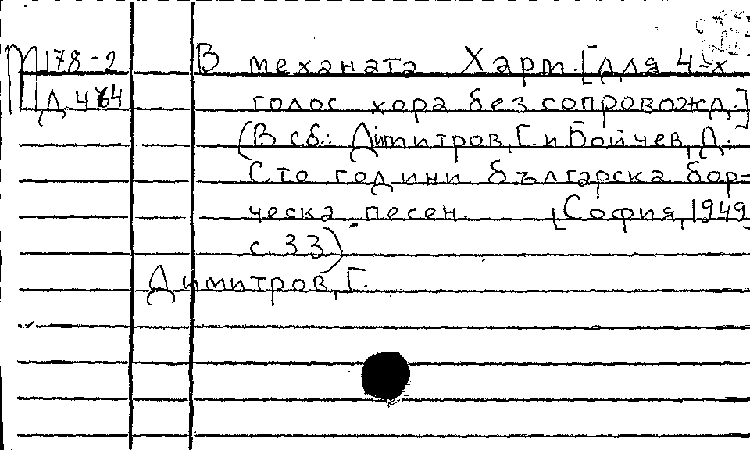 П178-2 В механата Харм.[для 4-х
Д 464 голос хора без сопровожд.]
(В сб.: Димитров, Г. и Бойчев, Д.
Сто години българска бор-
ческа песен. [София, 1949
с. 33)
Димитров, Г.